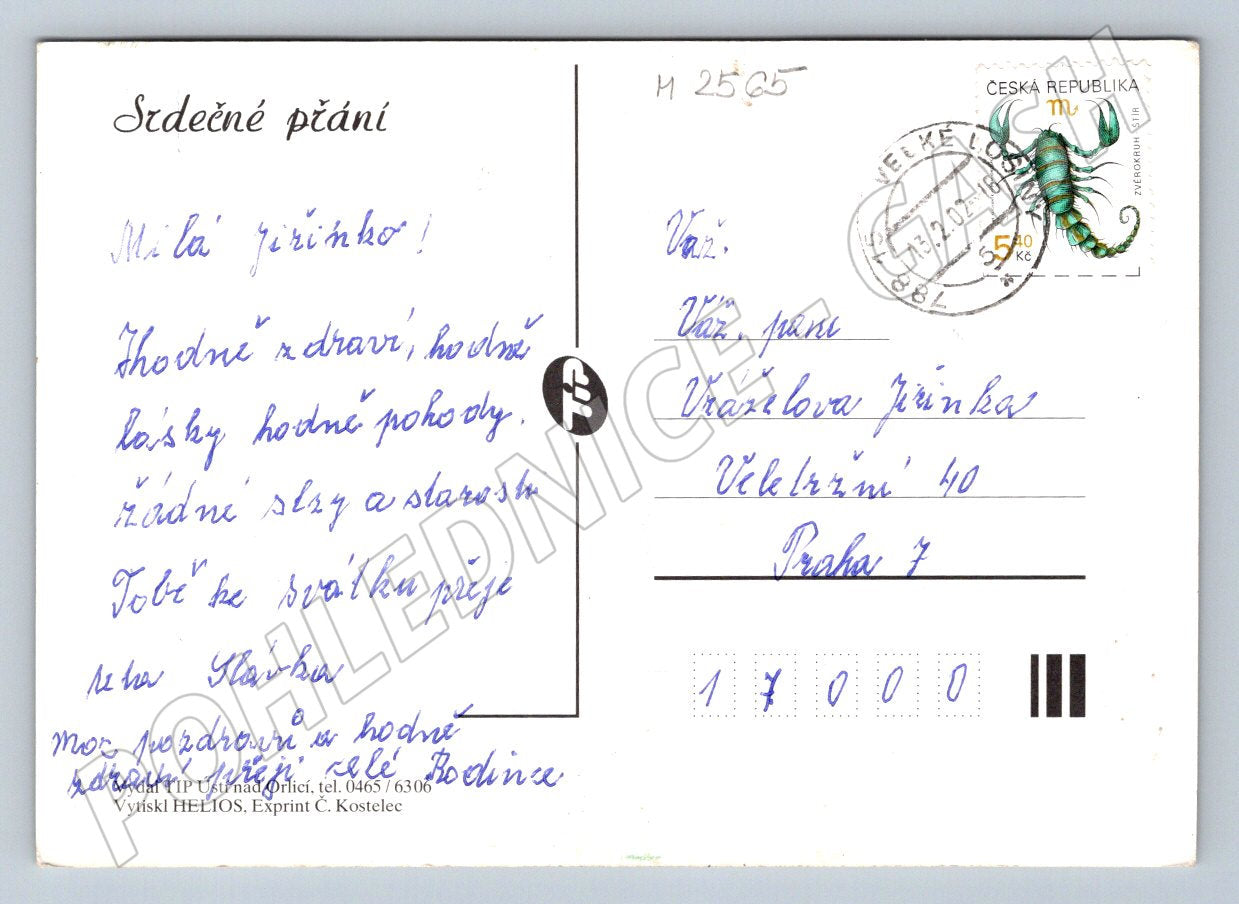 Srdečné přání
Milá Jiřinko!
hodně zdraví, hodně
lásky hodně pohody.
žádné slzy a starosti
Tobě ke svátku přeje
Slávka
Moc pozdravů a hodně
zdraví přeji celé Rodince
Vydal TIP Ústí nad Orlicí, tel. 0465/6306
Vytiskl HELIOS, Exprint Č. Kostelec
TIP
M 2565
ČESKÁ REPUBLIKA
ZVĚROKRUH ŠTÍR
5 40
Kč
788 15 VELKÉ LOSINY
13.2.02-18
Váž.
Váž. paní
Jiřinka
Veletržní 40
Praha 7
1 7 0 0 0
POHLEDNICE - GASH